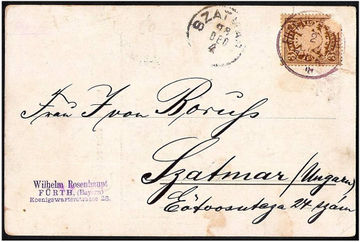 SZATMÁR
98
DEC
4
Frau J von Boruss
Szatmar (Ungarn)
Eötvösutcza 24 szám
Wilhelm Rosenhaupt
FÜRTH. (Bayern)
Koenigswarterstrasse 28.